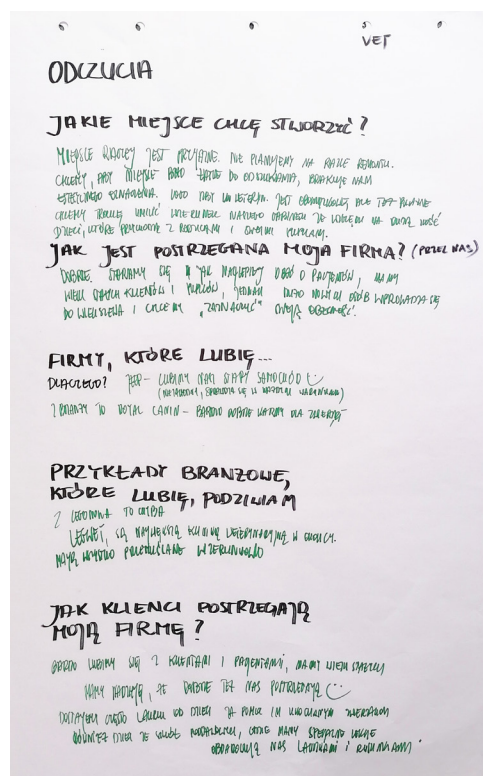 VET
ODCZUCIA
JAKIE MIEJSCE CHCĘ STWORZYĆ?
MIEJSCE RACZEJ JEST PRZYJAZNE. NIE PLANUJEMY NA RAZIE REMONTU.
CHCEMY, ABY MIEJSCE BYŁO ŁATWE DO ODSZUKANIA, BRAKUJE NAM
ESTETYCZNEGO OZNACZENIA. JEST ALE TEŻ
CHCEMY TROCHĘ WIZERUNEK NASZEGO GABINETU ZE WZGLĘDU NA DUŻĄ ILOŚĆ
DZIECI, KTÓRE PRZYCHODZĄ Z RODZICAMI I SWOIMI PUPILAMI.
JAK JEST POSTRZEGANA MOJA FIRMA? (PRZEZ NAS)
DOBRZE. STARAMY SIĘ JAK NAJLEPIEJ DBAĆ O PACJENTÓW, MAMY
WIELU STAŁYCH KLIENTÓW I PUPILÓW, JEDNAK DUŻO NOWYCH OSÓB WPROWADZA SIĘ
DO I CHCEMY „ZAZNACZYĆ" SWOJĄ OBECNOŚĆ.
FIRMY, KTÓRE LUBIĘ...
DLACZEGO? JEEP - LUBIMY NASZ STARY SAMOCHÓD
(NIEZAWODNY, SPRAWDZA SIĘ W KAŻDYCH WARUNKACH)
Z BRANŻY TO ROYAL CANIN - BARDZO DOBRE KARMY DLA ZWIERZĄT
PRZYKŁADY BRANŻOWE,
KTÓRE LUBIĘ, PODZIWIAM
Z LEGIONOWA TO CHYBA
LEGWET, SĄ NAJWIĘKSZĄ KLINIKĄ WETERYNARYJNĄ W OKOLICY.
MAJĄ WSZYSTKO PRZEMYŚLANE WIZERUNKOWO
JAK KLIENCI POSTRZEGAJĄ
MOJĄ FIRMĘ?
BARDZO LUBIMY SIĘ Z KLIENTAMI I PACJENTAMI, MAMY WIELU STAŁYCH
MAMY NADZIEJĘ, ŻE DOBRZE TEŻ NAS POSTRZEGAJĄ
DOSTAJEMY CZĘSTO LAURKI OD DZIECI ZA POMOC ICH UKOCHANYM ZWIERZAKOM
RÓWNIEŻ DZIECI ZE SZKÓŁ PODSTAWOWYCH, GDZIE MAMY SPECJALNE LEKCJE
OBDAROWUJĄ NAS LAURKAMI I RYSUNKAMI.